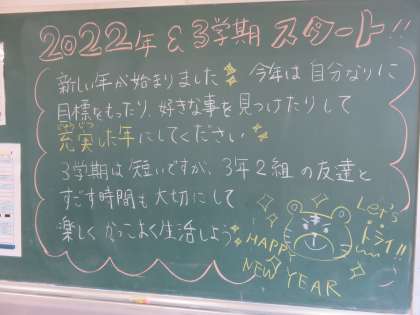 2022年 & 3学期 スタート!!
新しい年が始まりました 今年は自分なりに
目標をもったり、好きな事を見つけたりして
充実した年にしてください
3学期は短いですが、3年2組の友達と
すごす時間も大切にして
楽しくかっこよく生活しよう
Let's
トライ!!
HAPPY
NEW YEAR